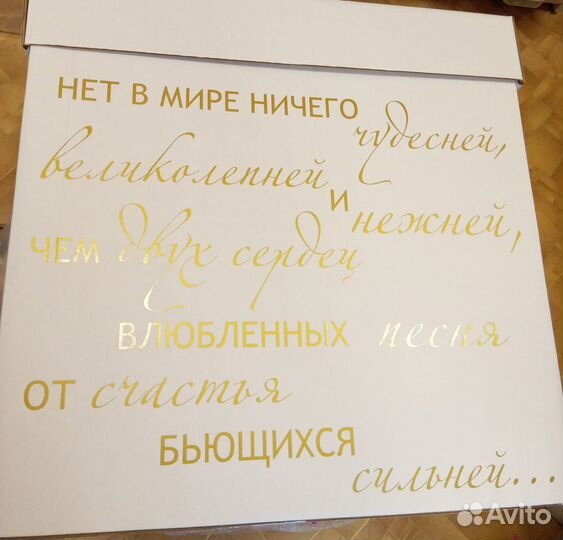 НЕТ В МИРЕ НИЧЕГО чудесней,
великолепней и нежней,
ЧЕМ двух сердец
ВЛЮБЛЕННЫХ песня
ОТ счастья
БЬЮЩИХСЯ
сильней...
Avito